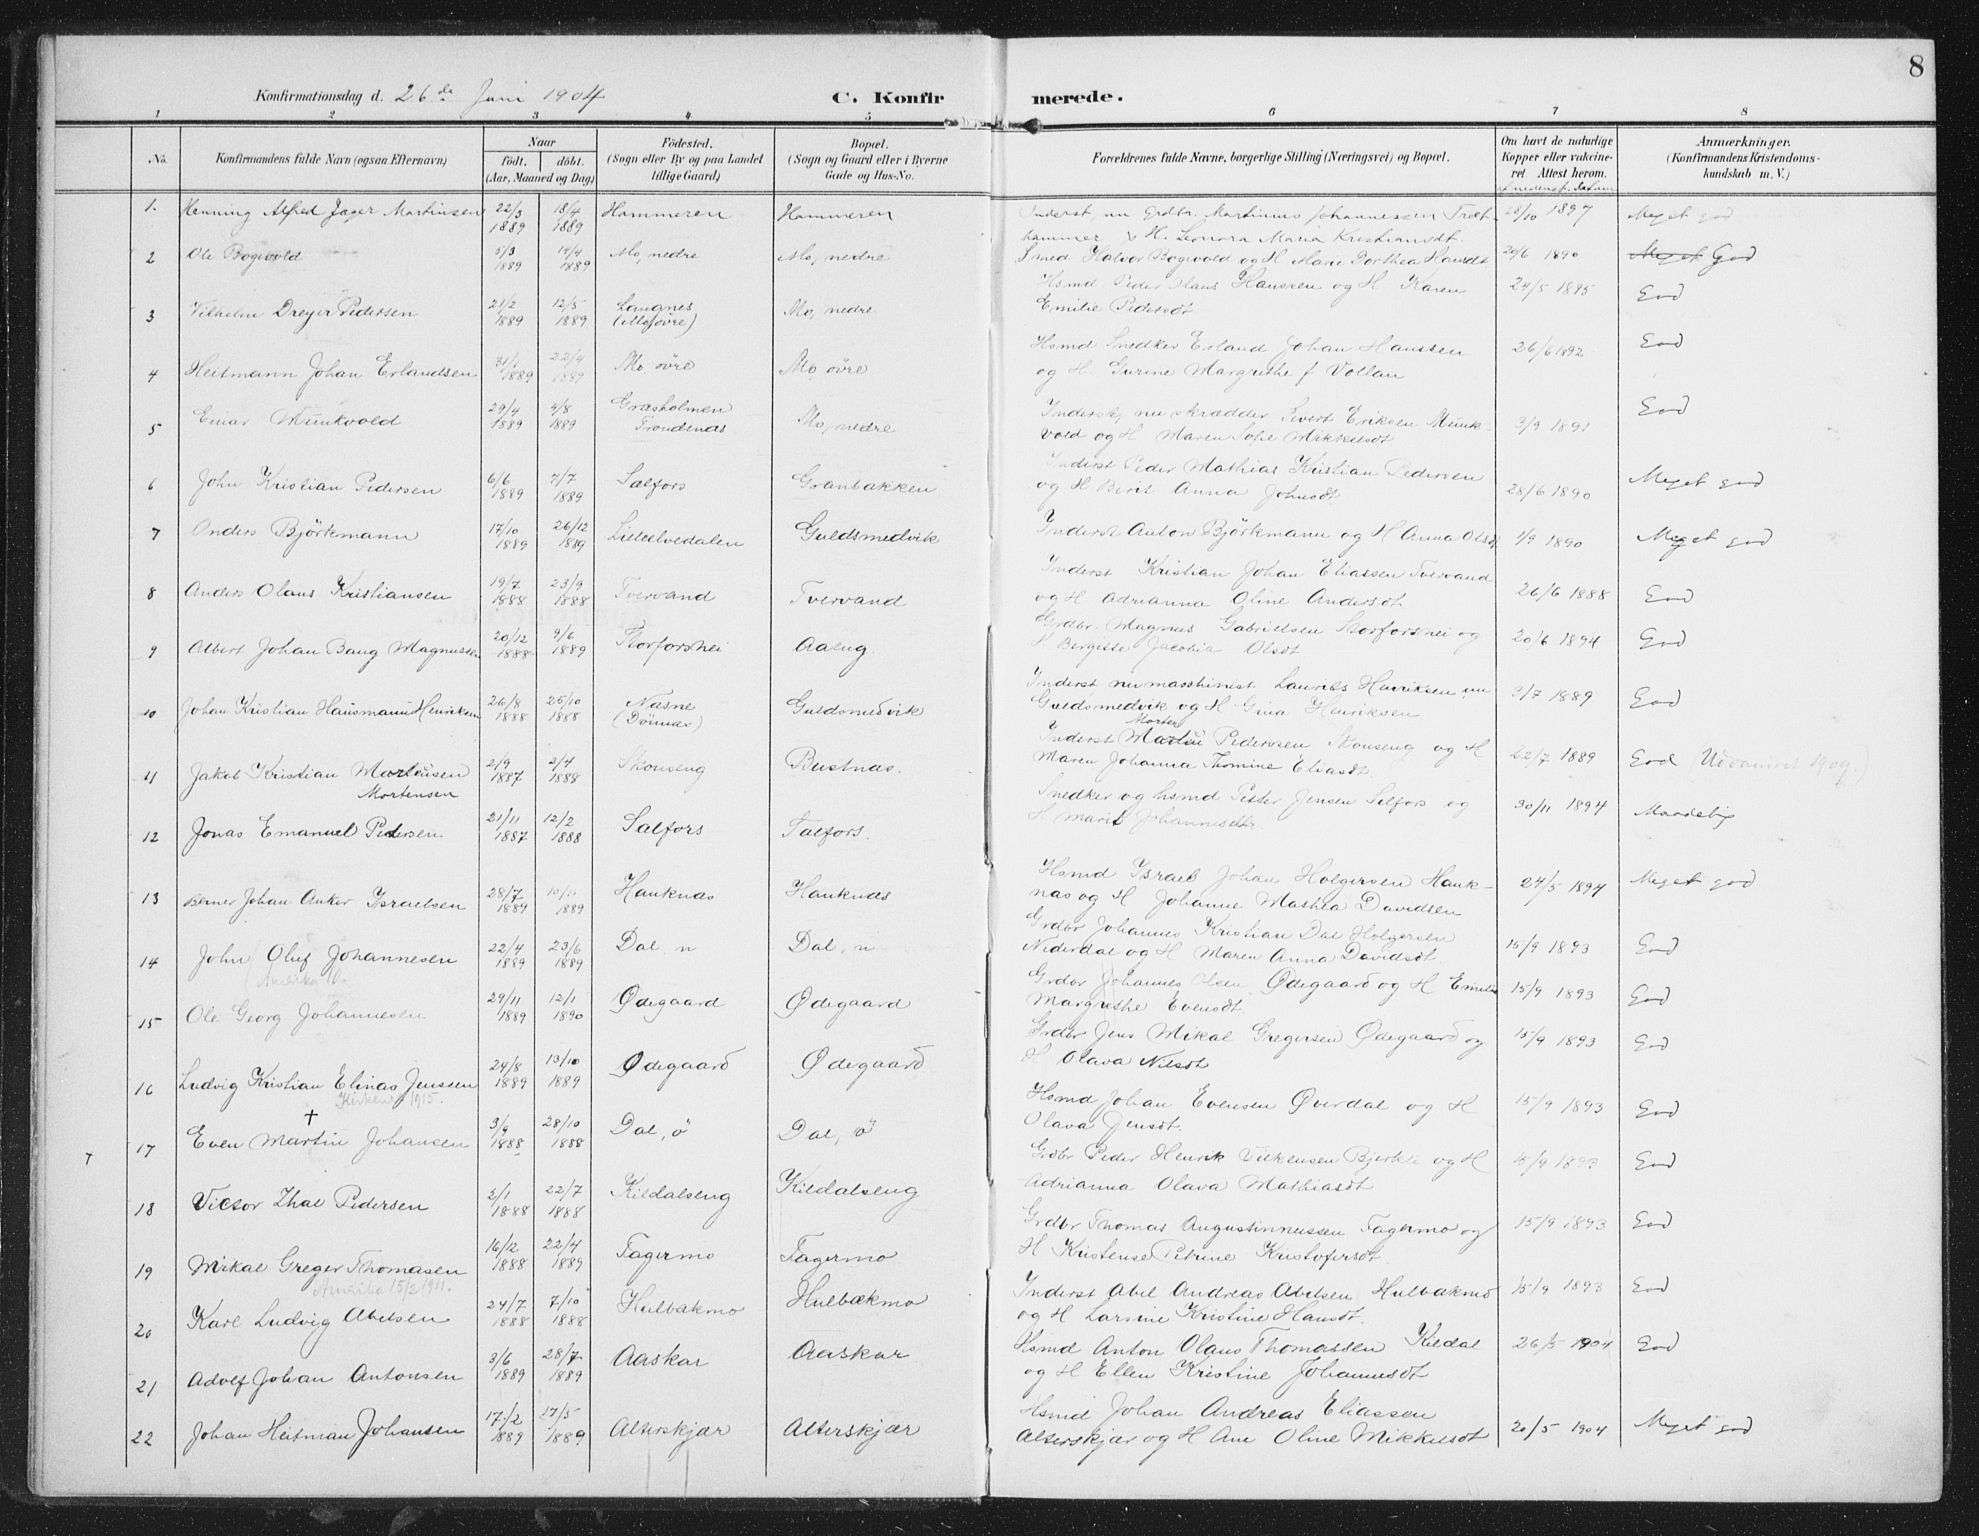 8
Konfirmationsdag d. 26de Juni 1904
C. Konfirmerede.
1 2 3 4 5 6 7 8
No. Konfirmandens fulde Navn (ogsaa Efternavn) Naar födt. döbt. (Aar, Maaned og Dag) Födested. (Sogn eller By og paa Landet tillige Gaard) Bopæl. (Sogn og Gaard eller i Byerne Gade og Hus-No. Forældrenes fulde Navne, borgerlige Stilling (Næringsvei) og Bopæl. Om havt de naturlige Kopper eller vakcineret. Attest herom. Anmærkninger. (Konfirmandens Kristendomskundskab m. V.)
1. Henning Alfred Jager Martinsen 22/3 1889 18/4 1889 Hammeren Hammeren Inderst, nu Grdbr. Martinus Johannessen 28/10 1897 Meget god
hammer & H. Leonora Maria Kristiansdt.
2 Ole Bogvold 5/3 1889 14/4 1889 Mo, nedre Mo, nedre Smed Halvor Bogvold og H Marie Dorthea Hansdt 29/6 1890 Meget God
3 Vilhelm Dreyer Pedersen 21/2 1889 12/5 1889 Langnes Mo, nedre Hsmd Peder Olaus Hanssen og H Karen 24/5 1895 God
Emilie Pedersdt
4 Heitmann Johan Erlandsen 31/1 1889 22/4 1889 Mo övre Mo, övre Hsmd Snedker Erland Johan Hanssen 26/6 1892 God
og H. Surine Margrethe f Vollan
5 Einar Munkvold 29/4 1889 4/8 1889 Græsholmen Trondenæs Mo, nedre Inderst, nu skrædder Sivert Eriksen Munk- 3/9 1891 God
vold og H Maren Sofie Mikkelsdt
6 John Kristian Pedersen 6/6 1889 7/7 1889 Selfors Granbakken Inderst Peder Mathias Kristian Pedersen 28/6 1890 Meget god
og H Berit Anna Johnsdt
7 Anders Björkmann 17/10 1889 26/12 1889 Lilleelvedalen Guldsmedvik Inderst Anton Björkmann og H Anna Olsdt 1/9 1890 Meget god
8 Anders Olaus Kristiansen 19/7 1888 23/9 1888 Tvervand Tvervand Inderst Kristian Johan Eliassen Tvervand 26/6 1888 God
og H Adrianna Oline Andersdt
9 Albert Johan Bang Magnussen 20/12 1888 9/6 1889 Storforshei Aaeng. Grdbr. Magnus Gabrielsen Storforshei og 20/6 1894 God
H Bergitte Jacobia Olsdt
10 Johan Kristian Hausmann Henriksen 26/8 1888 25/10 1888 Næsne (Dönnæs) Guldsmedvik Inderst nu maschinist Laurits Henriksen nu 3/7 1889 God
Guldsmedvik og H Gina Henriksen
11 Jakob Kristian Martinsen Mortensen 2/9 1887 2/4 1888 Skonseng Bustnæs. Inderst Martin Morten Pederssen Skonseng og H 22/7 1889 God (Udvandret 1909.)
Maren Johanna Thomine Eliasdt.
12 Jonas Emanuel Pedersen 21/11 1887 12/2 1888 Selfors Selfors. Snedker og hsmd Petter Jensen Selfors og 30/11 1894 Maadelig
H Marit Johannesdtr.
13 Berner Johan Anker Israelsen 28/7 1889 10/11 1889 Hauknæs Hauknæs Hsmd Israel Johan Holgersen Hauk- 24/5 1894 Meget god
næs og H Johanne Mathea Davidsen
14 John Oluf Johannesen 22/4 1889 23/6 1889 Dal n Dal, n Grdbr Johannes Kristian Dal Holgersen 15/9 1893 God
Nederdal og H Maren Anna Davidsdt.
15 Ole Georg Johannesen 29/11 1889 12/1 1890 Ødegaard Ødegaard Grdbr Johannes Olsen Ødegaard og H Emilie 15/9 1893 God
Margrethe Evensdt.
16 Ludvig Kristian Elinas Jenssen 24/8 1889 13/10 1889 Ødegaard Ødegaard Grdbr Jens Mikal Gregersen Ødegaard og 15/9 1893 God
H Olava Nilsdt
Kirkenes 1915.
17 † Even Martin Johansen 3/9 1888 28/10 1888 Dal, ö Dal, ö Hsmd Johan Evensen Øverdal og H 15/9 1893 God
Olava Jensdt.
18 Victor Thal Pedersen 2/1 1888 22/7 1888 Kildalseng Kildalseng Grdbr Peder Henrik Vilkensen Bjerkli og H 15/9 1893 God
Adrianna Olava Mathiasdt
19 Mikal Greger Thomasen 16/12 1888 22/4 1889 Fagermo Fagermo Grdbr Thomas Augustinnussen Fagermo og 15/9 1893 God
H Kristense Petrine Kristofersdt.
Amerika 15/2 1911.
20 Karl Ludvig Abelsen 24/7 1888 7/10 1888 Hulbækmo Hulbækmo Inderst Abel Andreas Abelsen Hulbækmo 15/9 1893 God
og H Larsine Kristine Hansdt.
21 Adolf Johan Antonsen 3/6 1889 28/7 1889 Aaskar Aaskar Hsmd Anton Olaus Thomassen Kildal 26/5 1904 God
og H Ellen Kristine Johannesdt
22 Johan Heitman Johansen 17/2 1889 17/5 1889 Alterskjær Alterskjær Hsmd Johan Andreas Eliassen 20/5 1904 Meget god
Alterskjær og H Ane Oline Mikkelsdt